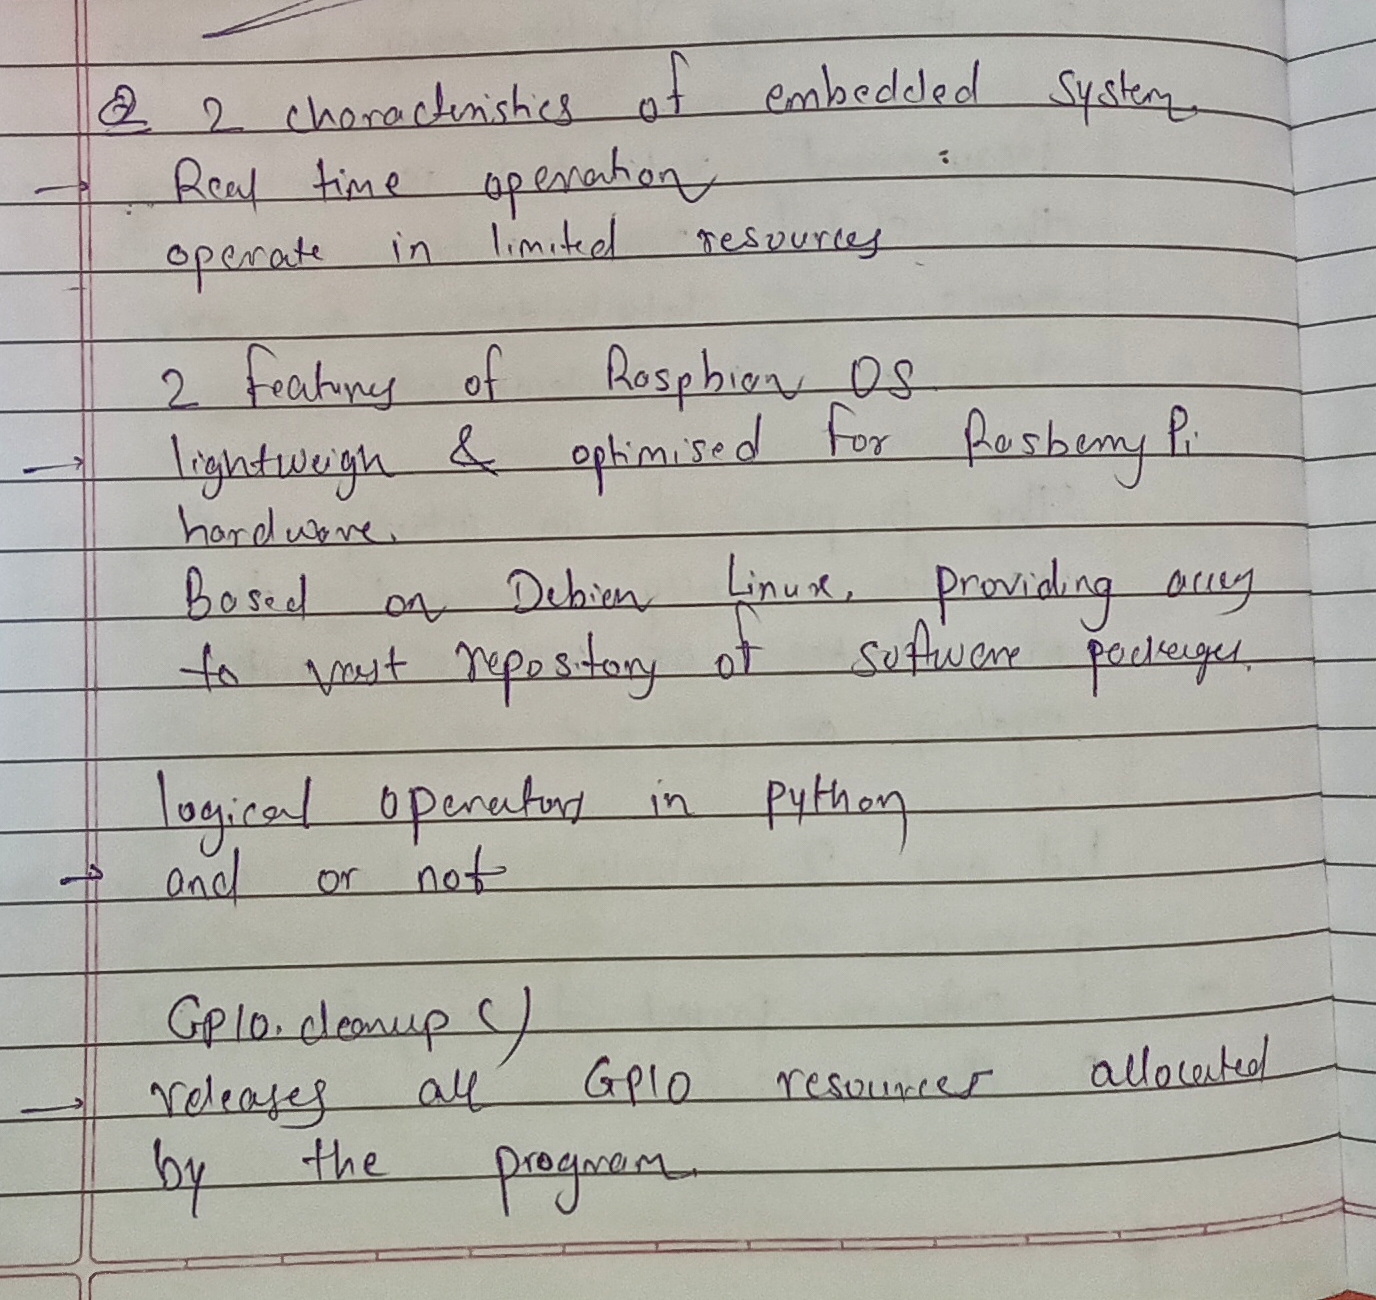 Q 2 characteristics of embedded system
→ Real time operation
operate in limited resources
2 features of Raspbian OS
→ lightweigh & optimised for Rasberry Pi
hardware.
Based on Debian Linux, providing
to vast repository of software packages.
logical operators in python
→ and or not
GPIO.cleanup()
→ releases all GPIO resources allocated
by the program.